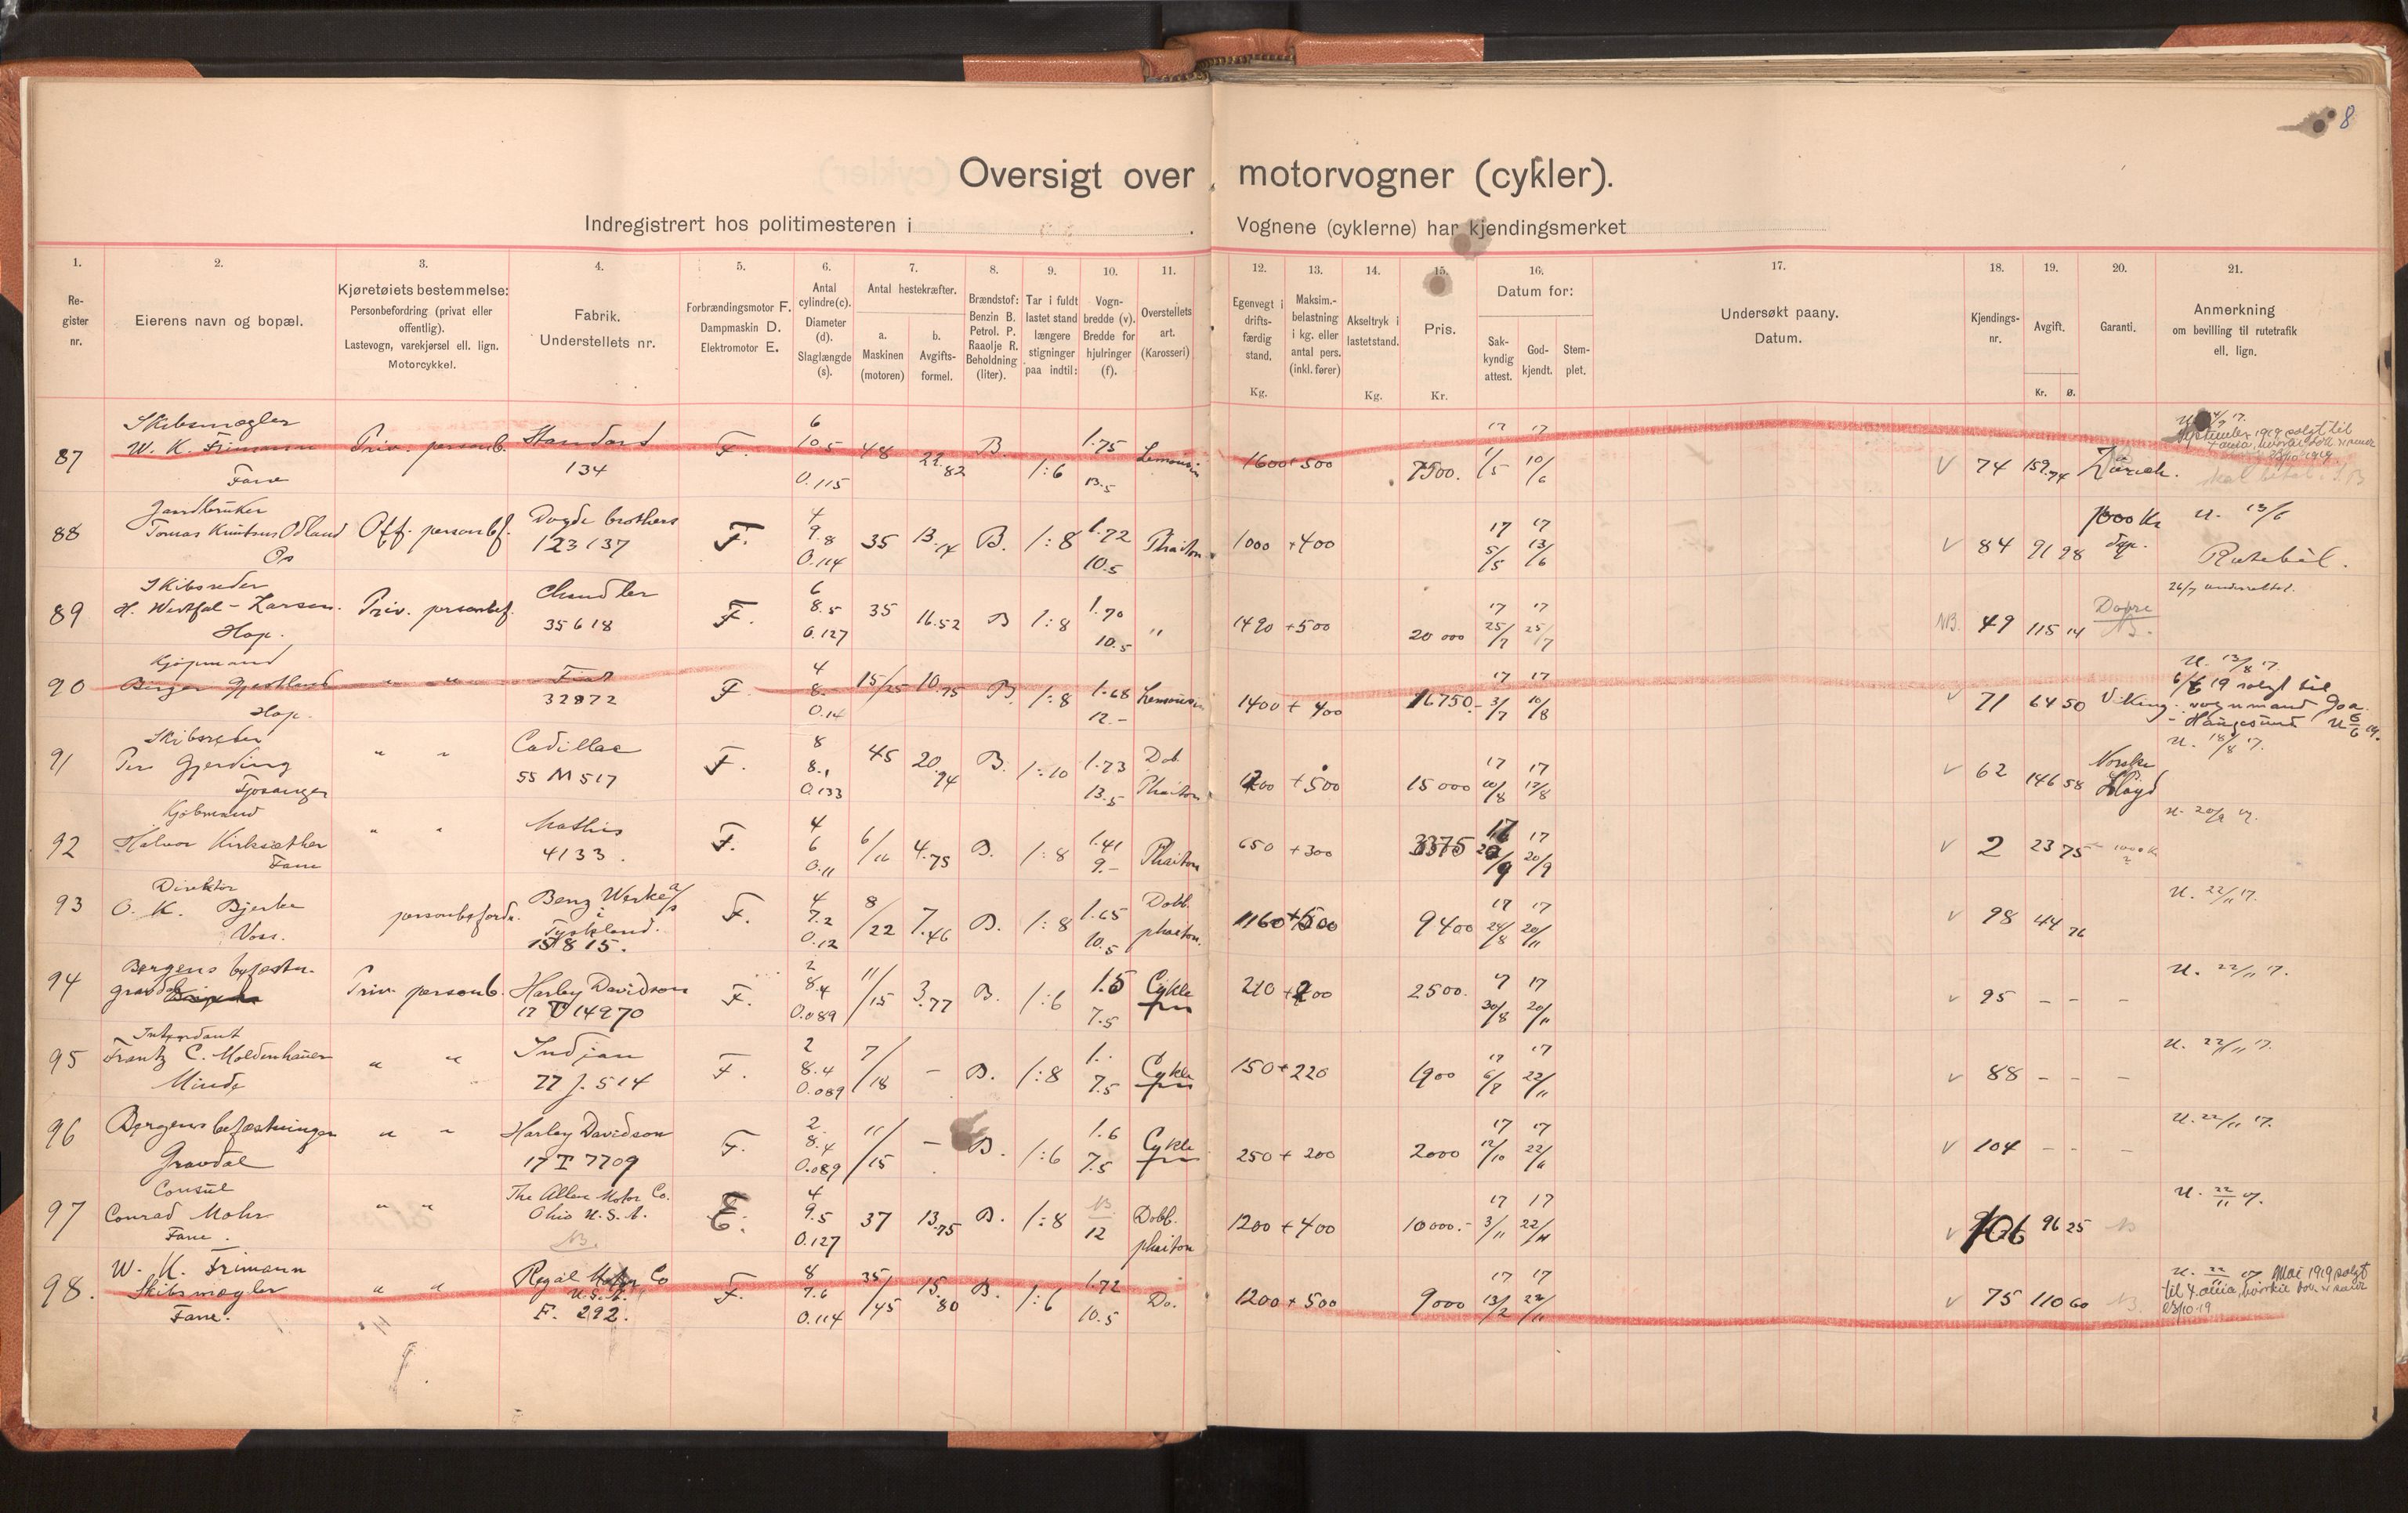 8
Oversigt over motorvogner (cykler).
Indregistrert hos politimesteren i . Vognene (cyklerne) har kjendingsmerket
1. Register nr.
2. Eierens navn og bopæl.
3. Kjøretøiets bestemmelse: Personbefordring (privat eller offentlig). Lastevogn, varekjørsel ell. lign. Motorcykkel.
4. Fabrik. Understellets nr.
5. Forbrændingsmotor F. Dampmaskin D. Elektromotor E.
6. Antal cylindre(c). Diameter (d). Slaglængde (s).
7. Antal hestekræfter. a. Maskinen (motoren) b. Avgiftsformel.
8. Brændstof: Benzin B. Petrol. P. Raaolje R. Beholdning (liter).
9. Tar i fuldt lastet stand længere stigninger paa indtil:
10. Vognbredde (v). Bredde for hjulringer (f).
11. Overstellets art. (Karosseri)
12. Egenvegt i driftsfærdig stand. Kg.
13. Maksim.-belastning i kg. eller antal pers. (inkl. fører)
14. Akseltryk i lastetstand. Kg.
15. Pris. Kr.
16. Datum for: Sakkyndig attest. Godkjendt. Stemplet.
17. Undersøkt paany. Datum.
18. Kjendings-nr.
19. Avgift. Kr. Ø.
20. Garanti.
21. Anmerkning om bevilling til rutetrafik ell. lign.
87 Skibsmægler W. K. Frimann Fane Priv. personb. Standard 134 F. 6 10.5 0.115 48 22.82 B. 1:6 1.75 13.5 Lemousin 1600 + 500 7500. 17 17 1/5 10/6 V 74 159.74 Zürich. September 1919 solgt til
88 Jandbruker Tomas Knutsen Ødland Os Off. personbf. Dogde brothers 123137 F. 4 9.8 0.114 35 13.14 B. 1:8 1.72 10.5 Phaiton 1000 + 400 17 17 5/5 13/6 V 84 91 98 1000 Kr dep. U. 13/6 Rutebil.
89 Skibsreder H. Westfal-Larsen. Hop. Priv. personbef. Chandler 35618 F. 6 8.5 0.127 35 16.52 B 1:8 1.70 10.5 " 1490 + 500 20 000 17 17 25/7 25/7 NB. 49 115 14 26/7
90 Kjøpmand Birger Gjestland Hop. " " Fiat 32872 F 4 8.- 0.14 15/25 10.75 B. 1:8 1.68 12.- Lemousin 1400 + 400 16750.- 17 17 3/7 10/8 V 71 64 50 Viking. U. 13/8 17. 6/6 19 solgt til vognmand Goa. - Haugesund
91 Skibsreder Per Gjerding Fjøsanger " " Cadillac 55 M 517 F. 8 8.1 0.133 45 20.94 B. 1:10 1.73 13.5 Dob. Phaiton 1200 + 500 15 000 17 17 10/8 17/8 V 62 146 58 Norske Lloyd U. 18/8 17.
92 Kjøbmand Halvor Kirksæther Fane " " Mathis 4133. F. 4 6 0.11 6/16 4.75 B. 1:8 1.41 9.- Phaiton 650 + 300 3375 17 17 20/9 20/9 V 2 23 75 1000 Kr U. 20/9 17.
93 Direktör O. K. Bjerke Voss. personbefordr. Benz Werke a/s i Tyskland. 15815. F. 4 7.2 0.12 8/22 7.46 B. 1:8 1.65 10.5 Dobb. phaiton. 1160 + 500 9400 17 17 24/8 20/11 V 98 44 76 U. 22/11 17.
94 Bergens befæstn. Gravdal Priv. personb. Harley Davidson 17 T 14970 F. 2 8.4 0.089 11/15 3.77 B. 1:6 1.5 7.5 Cykle 210 + 200 2500. 17 17 30/8 20/11 V 95 - - - U. 22/11 17.
95 Intendant Frantz C. Moldenhauer Minde " " Indian 77 J. 514 F. 2 8.4 0.089 7/18 - B. 1:8 1.. 7.5 Cykle 150 + 220 1900 17 17 6/8 22/11 V 88 - - - U. 22/11 17.
96 Bergens befæstninger Gravdal " " Harley Davidson 17 T 7709 F. 2. 8.4 0.089 11/15 - B. 1:6 1.6 7.5 Cykle 250 + 200 2000 17 17 12/10 22/11 V 104 - - - U. 22/11 17.
97 Consul Conrad Mohr Fane. " " The Allen Motor Co. Ohio U.S.A. NB. E. 4 9.5 0.127 37 13.75 B. 1:8 NB. 12 Dobb. phaiton 1200 + 400 10000.- 17 17 3/11 22/11 V 106 96 25 U. 22/11 17.
98. W. K. Frimann Skibsmægler Fane. " " Regal Motor Co U.S.A. F. 292. F. 8 7.6 0.114 35/45 15.80 B. 1:6 1.72 10.5 Do. 1200 + 500 9000 17 17 13/2 22/11 V 75 110 60 U. 22/11 17 Mai 1919 solgt til